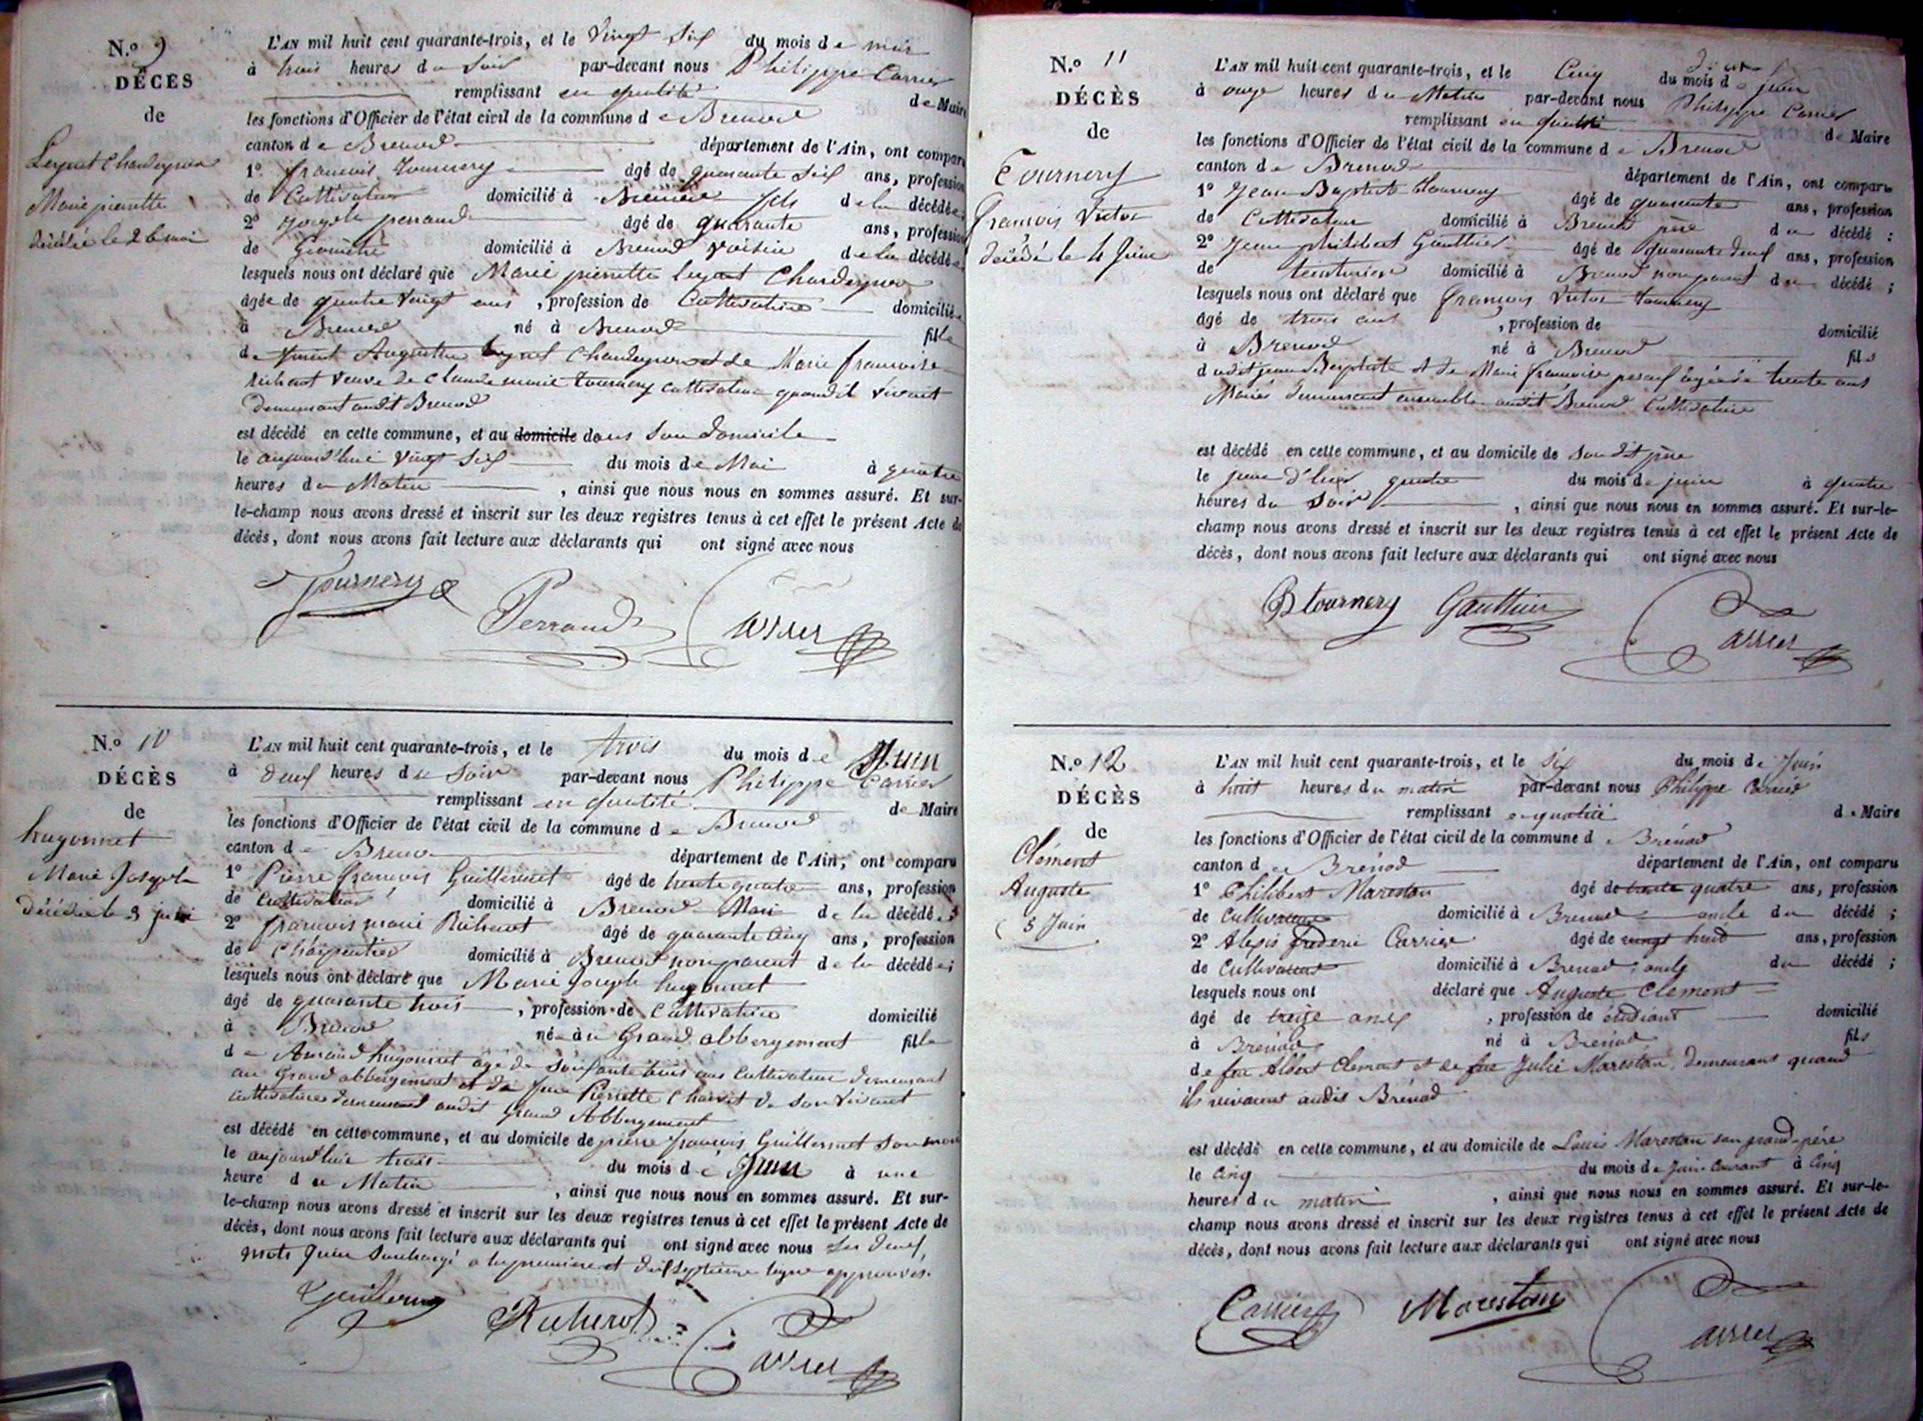 N.º 9
DÉCÈS
de
Marie pierrette
décédée le 26 mai
L'AN mil huit cent quarante-trois, et le vingt six du mois de mai
à trois heures du soir par-devant nous Philippe Carrier
remplissant en qualité de Maire
les fonctions d'Officier de l'état civil de la commune de Brenod
canton de Brenod département de l'Ain, ont comparu
1º françois Tournery âgé de quarante six ans, profession
de Cultivateur domicilié à Brenod fils de la décédée
2º Joseph perraud âgé de quarante ans, profession
de domicilié à Brenod voisin de la décédée
lesquels nous ont déclaré que Marie pierrette
âgée de quatre vingt ans, profession de Cultivatrice domiciliée
à Brenod né à Brenod fille
de Augustin et de Marie francoise
Richerot veuve de Claude marie Tournery cultivateur quand il vivait
demeurant audit Brenod
est décédé en cette commune, et au domicile dans son domicile
le aujourd'hui vingt six du mois de Mai à quatre
heures du Matin, ainsi que nous nous en sommes assuré. Et sur-
le-champ nous avons dressé et inscrit sur les deux registres tenus à cet effet le présent Acte de
décès, dont nous avons fait lecture aux déclarants qui ont signé avec nous
Tournery Perraud Carrier
N.º 10
DÉCÈS
de
hugonnet
Marie Joseph
décédée le 3 juin
L'AN mil huit cent quarante-trois, et le trois du mois de Juin
à deux heures du soir par-devant nous Philippe Carrier
remplissant en qualité de Maire
les fonctions d'Officier de l'état civil de la commune de Brenod
canton de Brenod département de l'Ain, ont comparu
1º Pierre françois Guillermet âgé de trente quatre ans, profession
de Cultivateur domicilié à Brenod Mari de la décédée
2º françois marie Richerot âgé de quarante cinq ans, profession
de Charpentier domicilié à Brenod non parent de la décédée;
lesquels nous ont déclaré que Marie Joseph hugonnet
âgé de quarante trois, profession de Cultivatrice domicilié
à Brenod née au Grand abbergement fille
de hugonnet âgé de soixante trois ans Cultivateur demeurant
au Grand abbergement et de feue Pierrette de son vivant
cultivatrice demeurant audit Grand Abbergement
est décédé en cette commune, et au domicile de pierre françois Guillermet son mari
le aujourd'hui trois du mois de Juin à une
heure du Matin, ainsi que nous nous en sommes assuré. Et sur-
le-champ nous avons dressé et inscrit sur les deux registres tenus à cet effet le présent Acte de
décès, dont nous avons fait lecture aux déclarants qui ont signé avec nous Les deux
mots Juin surchargé a la premiere et dix septieme ligne approuvés.
Guillermet Richerot Carrier
N.º 11
DÉCÈS
de
Tournery
François Victor
décédé le 4 Juin
L'AN mil huit cent quarante-trois, et le Cinq du mois de juin
à onze heures du Matin par-devant nous Philippe Carrier
remplissant en qualité de Maire
les fonctions d'Officier de l'état civil de la commune de Brenod
canton de Brenod département de l'Ain, ont comparu
1º Jean Baptiste Tournery âgé de quarante ans, profession
de Cultivateur domicilié à Brenod père du décédé;
2º Jean philibert Gauthier âgé de quarante deux ans, profession
de teinturier domicilié à Brenod non parent du décédé;
lesquels nous ont déclaré que françois Victor Tournery
âgé de trois ans, profession de domicilié
à Brenod né à Brenod fils
dudit jean Baptiste et de Marie francoise âgée de trente ans
Mariés demeurant ensemble audit Brenod Cultivatrice
est décédé en cette commune, et au domicile de son dit père
le jour d'hier quatre du mois de juin à quatre
heures du soir, ainsi que nous nous en sommes assuré. Et sur-le-
champ nous avons dressé et inscrit sur les deux registres tenus à cet effet le présent Acte de
décès, dont nous avons fait lecture aux déclarants qui ont signé avec nous
Btournery Gauthier Carrier
N.º 12
DÉCÈS
de
Clément
Auguste
5 Juin
L'AN mil huit cent quarante-trois, et le six du mois de Juin
à huit heures du matin par-devant nous Philippe Carrier
remplissant en qualité de Maire
les fonctions d'Officier de l'état civil de la commune de Brénod
canton de Brénod département de l'Ain, ont comparu
1º Philibert Marestan âgé de trente quatre ans, profession
de Cultivateur domicilié à Brenod oncle du décédé;
2º Alexis frederic Carrier âgé de vingt huit ans, profession
de Cultivateur domicilié à Brenod; oncle du décédé;
lesquels nous ont déclaré que Auguste Clément
âgé de treize ans, profession de étudiant domicilié
à Brénod né à Brenod fils
de feu Albert Clement et de feue Julie Marestan, demeurant quand
ils vivaient audit Brénod
est décédé en cette commune, et au domicile de Louis Marestan son grand-père
le cinq du mois de Juin courant à cinq
heures du matin, ainsi que nous nous en sommes assuré. Et sur-le-
champ nous avons dressé et inscrit sur les deux registres tenus à cet effet le présent Acte de
décès, dont nous avons fait lecture aux déclarants qui ont signé avec nous
Carrier Marestan Carrier